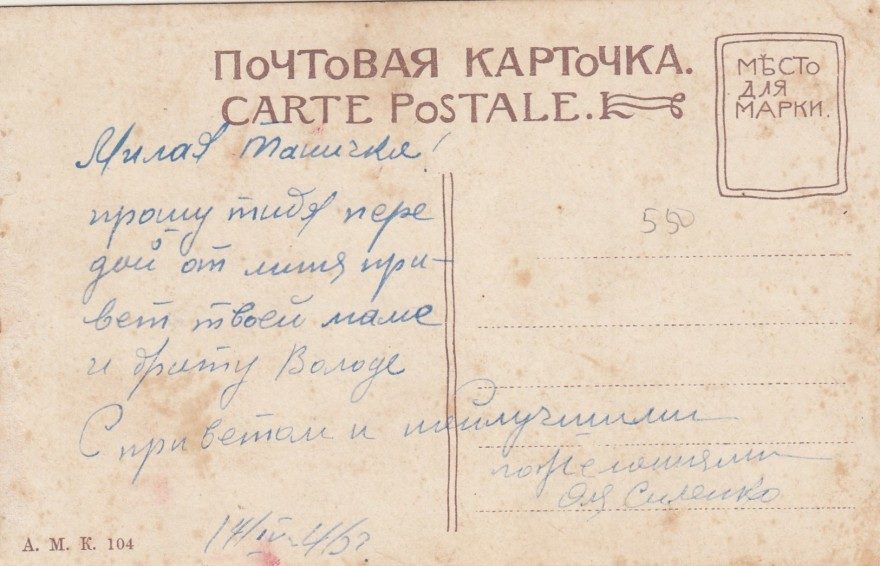 ПОЧТОВАЯ КАРТОЧКА.
CARTE POSTALE.
МѢСТО
ДЛЯ
МАРКИ.
550
Милая Таничка!
прошу тибя пере
дай от миня при-
вет твоей маме
и брату Володе
С приветом и наилучшими
пожеланиями
Оля Силенко
14/IV
А. М. К. 104